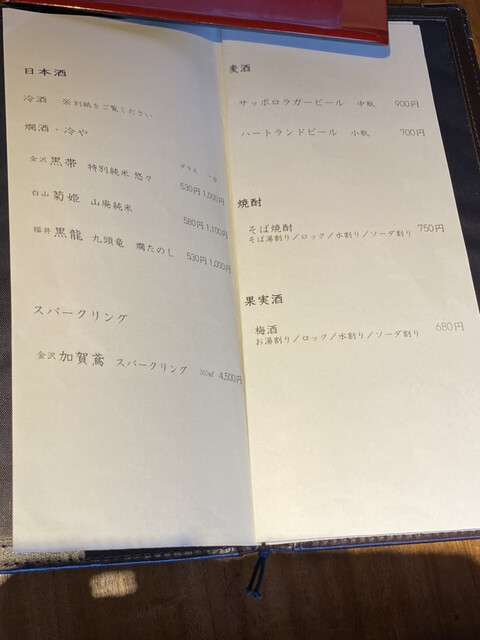 日本酒
冷酒 ※別紙をご覧ください
燗酒・冷や
グラス 一合
金沢 黒帯 特別純米 悠々 530円 1,000円
白山 菊姫 山廃純米 580円 1,100円
福井 黒龍 九頭竜 燗たのし 530円 1,000円
スパークリング
金沢 加賀鳶 スパークリング 360ml 4,500円
麦酒
サッポロラガービール 中瓶 900円
ハートランドビール 小瓶 700円
焼酎
そば焼酎 750円
そば湯割り/ロック/水割り/ソーダ割り
果実酒
梅酒 680円
お湯割り/ロック/水割り/ソーダ割り